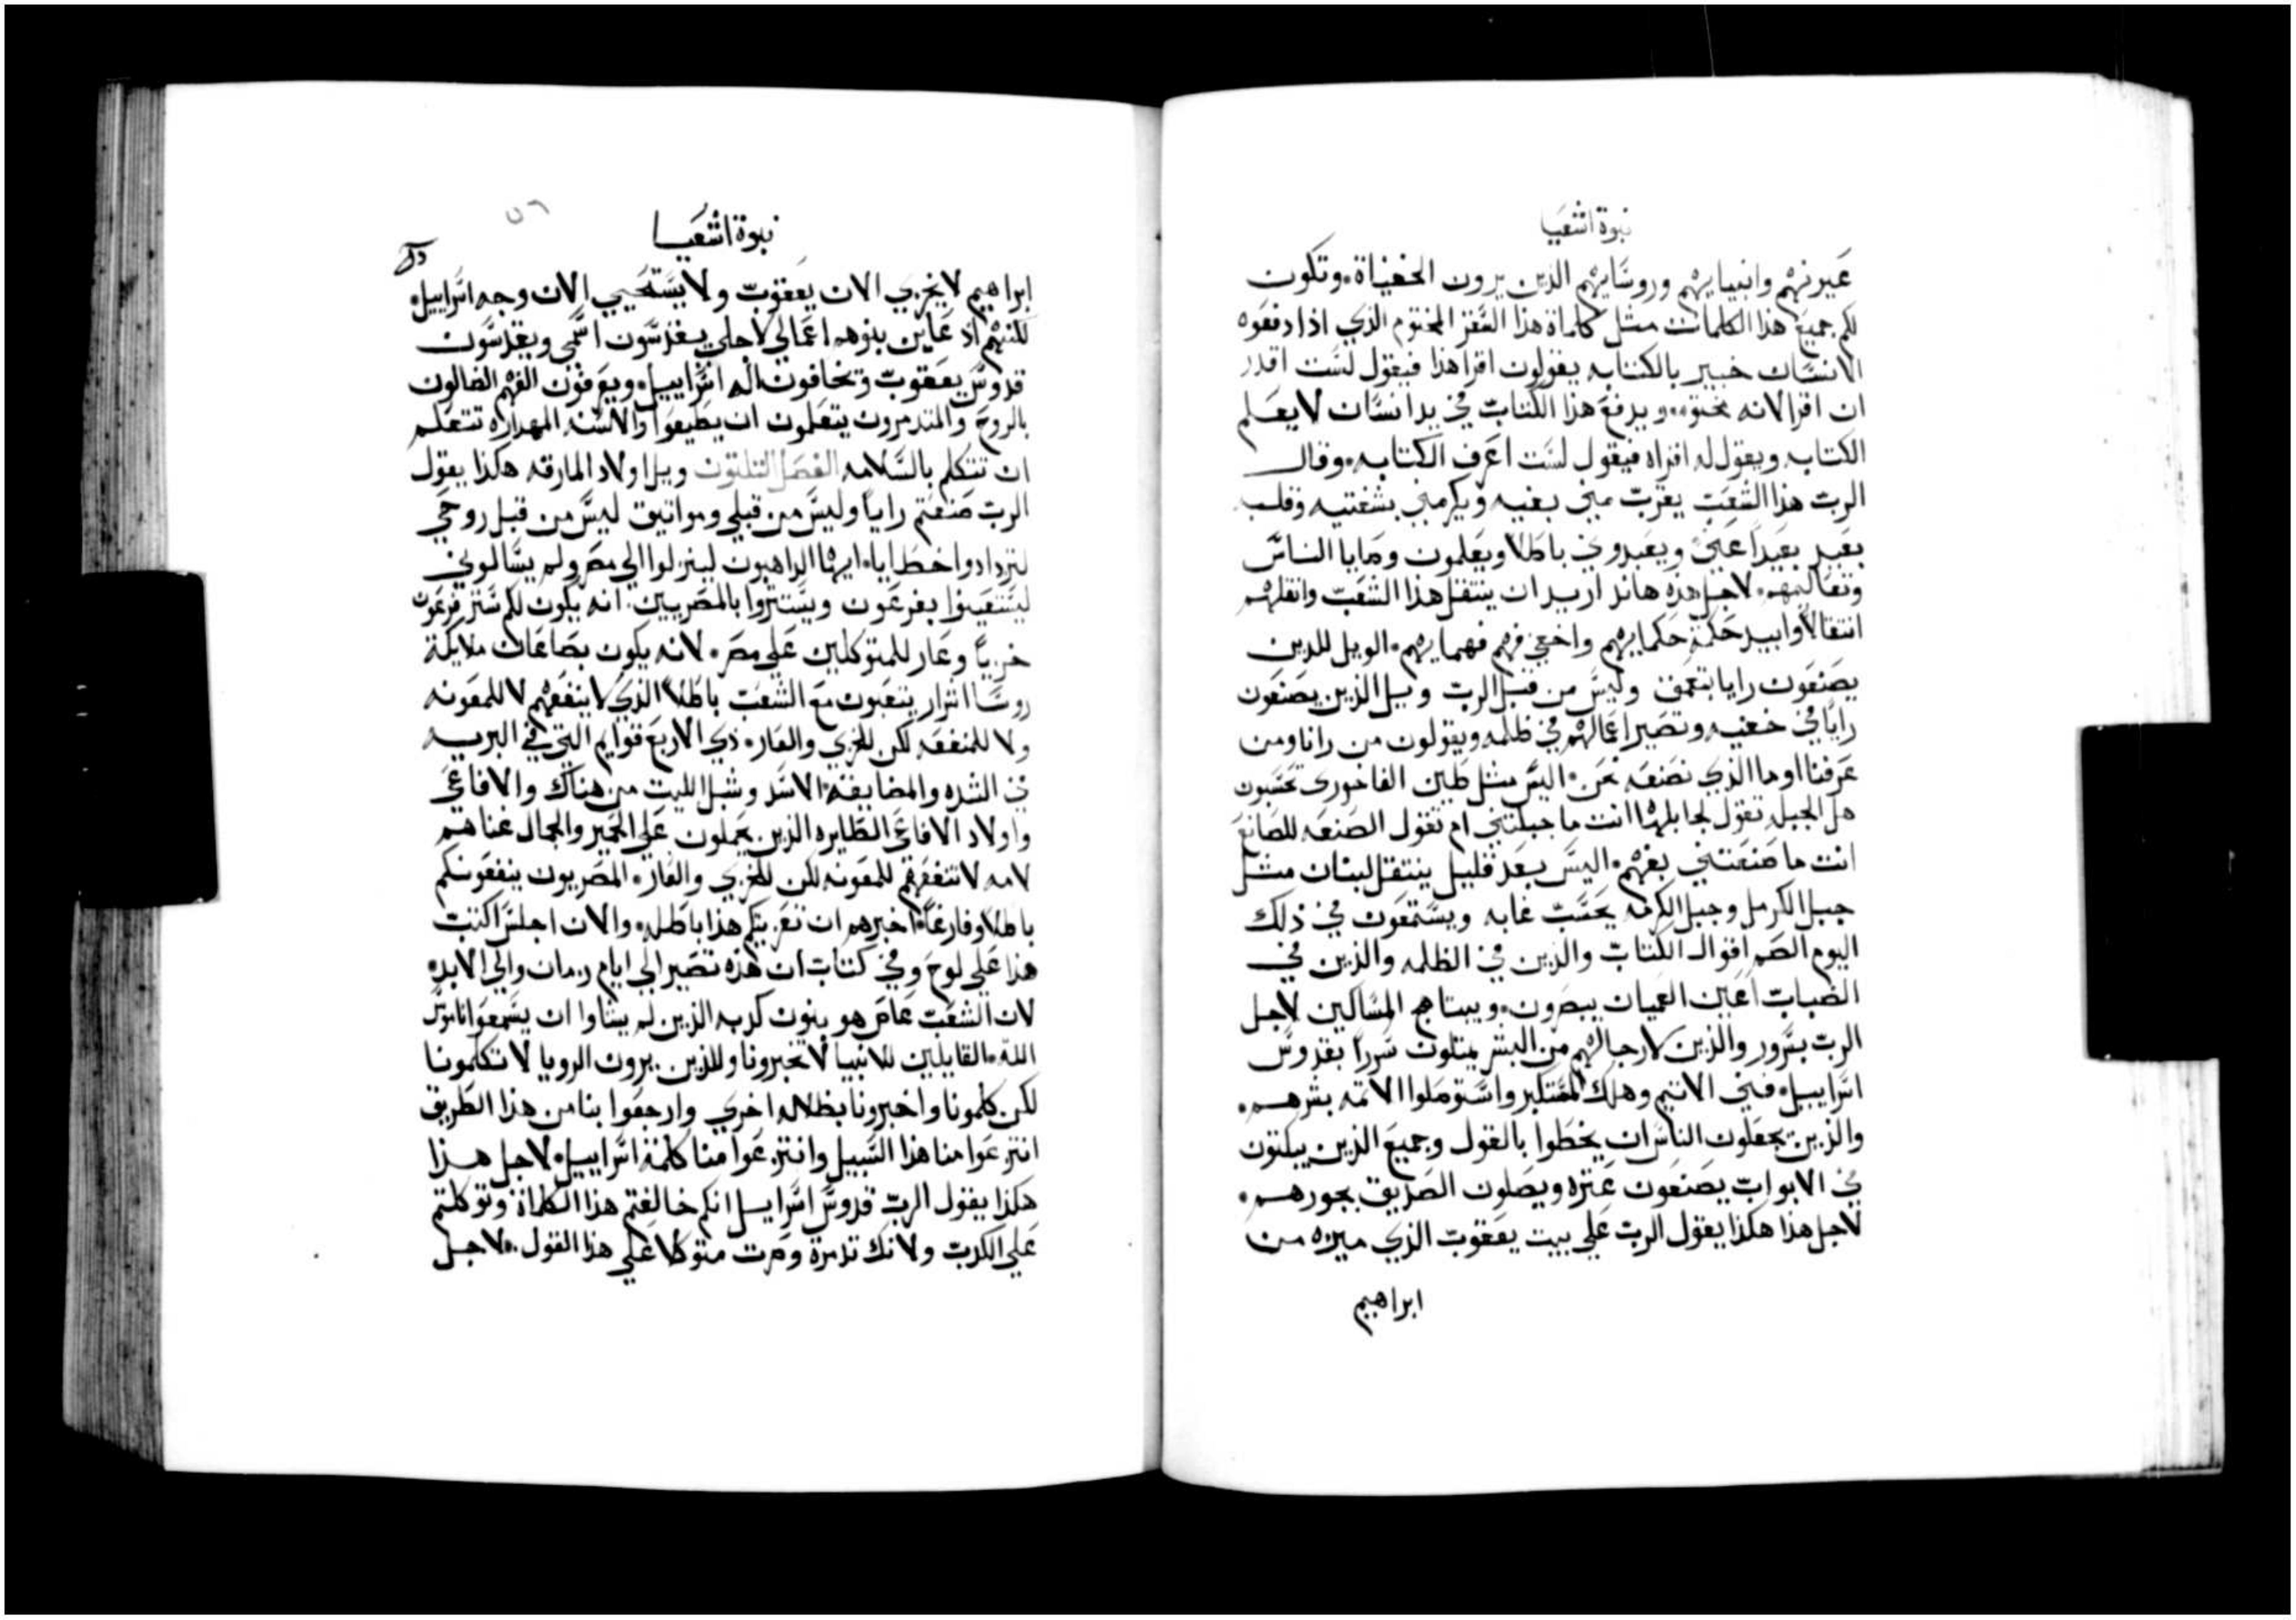 نبوة اشعيا
عيونهم وانبيايهم وروسايهم الذين يرون الخفياة. وتكون
لكم جميع هذا الكلمات مثل كلماة هذا السفر المختوم الذي اذا دفعوه
الانسان خبير بالكتابه يقولون اقرا هذا فيقول لست اقدر
ان اقرا لانه مختوم. ويدفع هذا الكتاب في يد انسان لا يعلم
الكتابه ويقول له اقراه فيقول لست اعرف الكتابه. وقال
الرب هذا الشعب يقرب مني بفيه ويكرمني بشفتيه وقلبه
بعيد بعيداً عني ويعبدوني باطلا ويعلمون وصايا الناس
وتعاليمهم. لاجل هذه هاندا اريد ان ينتقل هذا الشعب وانقلهم
انتقالا وابيد حكمة حكمايهم واخفي فهم فهمايهم. الويل للدين
يصنعون رايا بتعمق وليس من قبل الرب ويل الذين يصنعون
راياً في خفيه وتصير اعمالهم في ظلمه ويقولون من رانا ومن
عرفنا او ما الذي نصنعه نحن. اليس مثل طين الفاخوري تحسبون
هل الجبله تقول لجابلها انت ما جبلتني ام تقول الصنعه للصانع
انت ما صنعتني بفهم. اليس بعد قليل ينتقل لبنان مثل
جبل الكرمل وجبل الكرمه يحسب غابه ويسمعون في ذلك
اليوم الصم اقوال الكتاب والذين في الظلمه والذين في
الضباب اعين العميان يبصرون. ويبتاهج المساكين لاجل
الرب بسرور والذين لا رجا لهم من البشر يمتلون سرراً بقدوس
اسراييل. فني الاتيم وهلك المتكبر واستوصلوا الاتمه بشرهم.
والذين يجعلون الناس ان يخطوا بالقول وجميع الذين يبكتون
في الابواب يصنعون عتره ويضلون الصديق بجورهم.
لاجل هذا هكذا يقول الرب علي بيت يعقوب الذي ميزه من
ابراهيم
٥٦
نبوة اشعيا
ابراهيم لا يخزي الان يعقوب ولا يستحيي الان وجه اسراييل.
لكنهم اذ عاين بنوهم اعمالي لاجلي يقدسون اسمي ويقدسون
قدوس يعقوب وتخافون اله اسراييل. ويعرفون الفهم الضالون
بالروح والمتدمرون يتعلمون ان يطيعوا والالسنه المهداره تتعلم
ان تتكلم بالسلامه الفصل التلتون ويل اولاد المارقه هكذا يقول
الرب صنعتم راياً وليس من قبلي ومواتيق ليس من قبل روحي
لتزدادوا خطايا. ايها الداهبون لينزلوا الي مصر ولم يسالوني
ليستعينوا بفرعون ويستتروا بالمصريين. انه يكون لكم ستر فرعون
خزياً وعار للمتوكلين علي مصر. لانه يكون بصاعان ملايكة
روسا اشرار يتعبون مع الشعب باطلا الذي لا ينفعهم لا للمعونه
ولا للمنفعه لكن للخزي والعار. ذي الاربع قوايم التي في البريه
في الشده والمضايقه. الاسد وشبل الليت من هناك والافاعي
واولاد الافاعي الطايره الذين يحملون علي الحمير والجمال غناهم
لامه لا تنفعهم للمعونه لكن للخزي والعار. المصريون ينفعونكم
باطلا وفارغاً. اخبرهم ان تعزيتكم هذا باطله. والان اجلس اكتب
هذا علي لوح وفي كتاب ان هذه تصير الي ايام زمان والي الابد.
لان الشعب عاص هو بنون كدبه الذين لم يشاوا ان يسمعوا ناموس
الله. القايلين للانبيا لا تخبرونا وللذين يرون الرويا لا تكلمونا
لكن كلمونا واخبرونا بظلاله اخري وارجعوا بنا من هذا الطريق
انتزعوا منا هذا السبيل وانتزعوا منا كلمة اسراييل. لاجل هذا
هكذا يقول الرب قدوس اسراييل انكم خالفتم هذا الكلماة وتوكلتم
علي الكدب ولانك تدمرة وصرت متوكلا علي هذا القول. لاجل